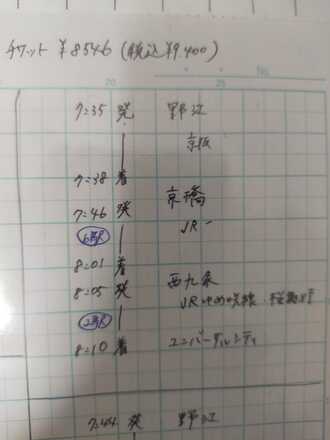 チケット ¥8546 (税込 ¥9,400)
No.
20 25
7:35 発 野江
京阪
7:38 着
京橋
7:46 発
JR
6駅
8:01 着
西九条
8:05 発
JRゆめ咲線・桜島行
2駅
8:10 着 ユニバーサルシティ
7:44 発 野江